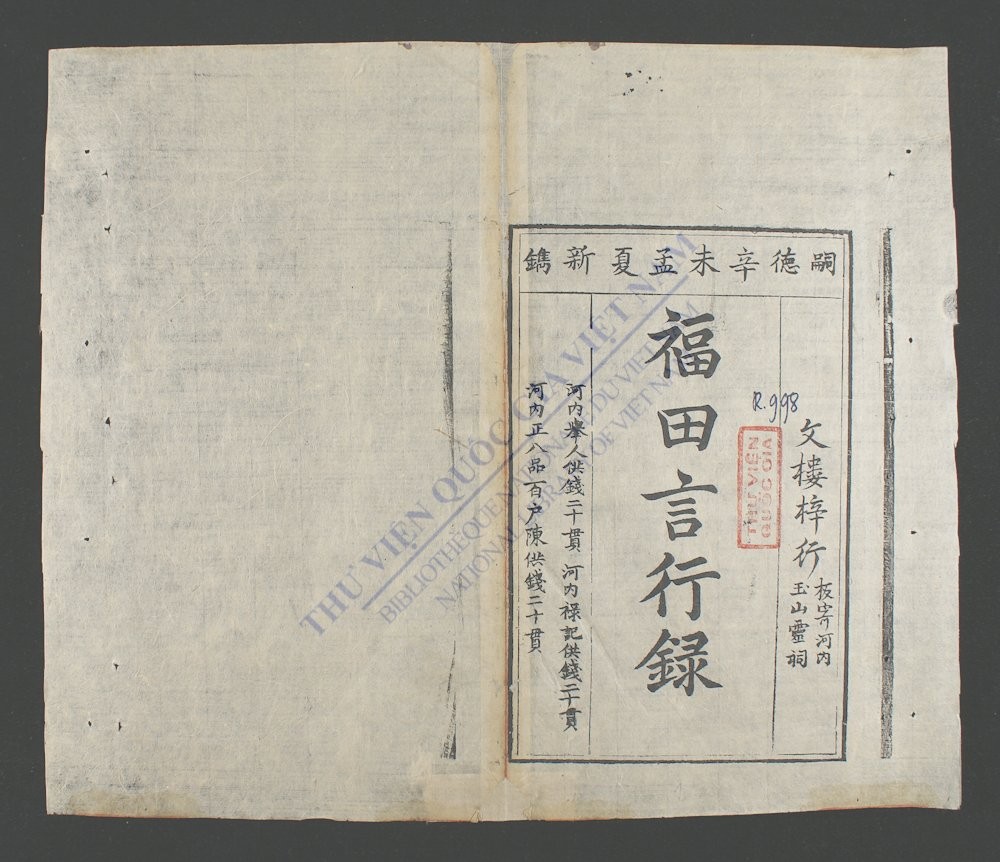 嗣德辛未孟夏新鐫
文樓梓行
板寄河内
玉山靈祠
福田言行録
河内舉人供錢二十貫 河内祿記供錢二十貫
河内正八品百户陳供錢二十貫
R.998
THƯ VIỆN
QUỐC GIA
THƯ VIỆN QUỐC GIA VIỆT NAM
BIBLIOTHÈQUE NATIONALE DU VIETNAM
NATIONAL LIBRARY OF VIETNAM